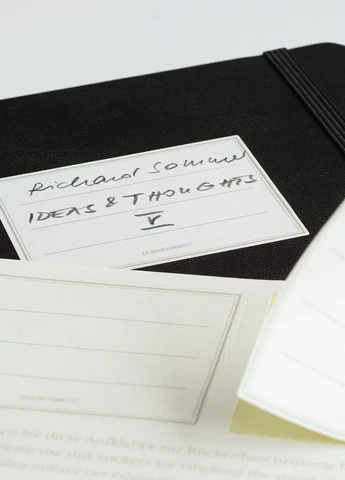 Richard Sommer
IDEAS & THOUGHTS
V
LEUCHTTURM
LEUCHTTURM
Sie diese Aufkleber zur Rückenbeschriftung
use this stickers for labelling the
utiliser ces